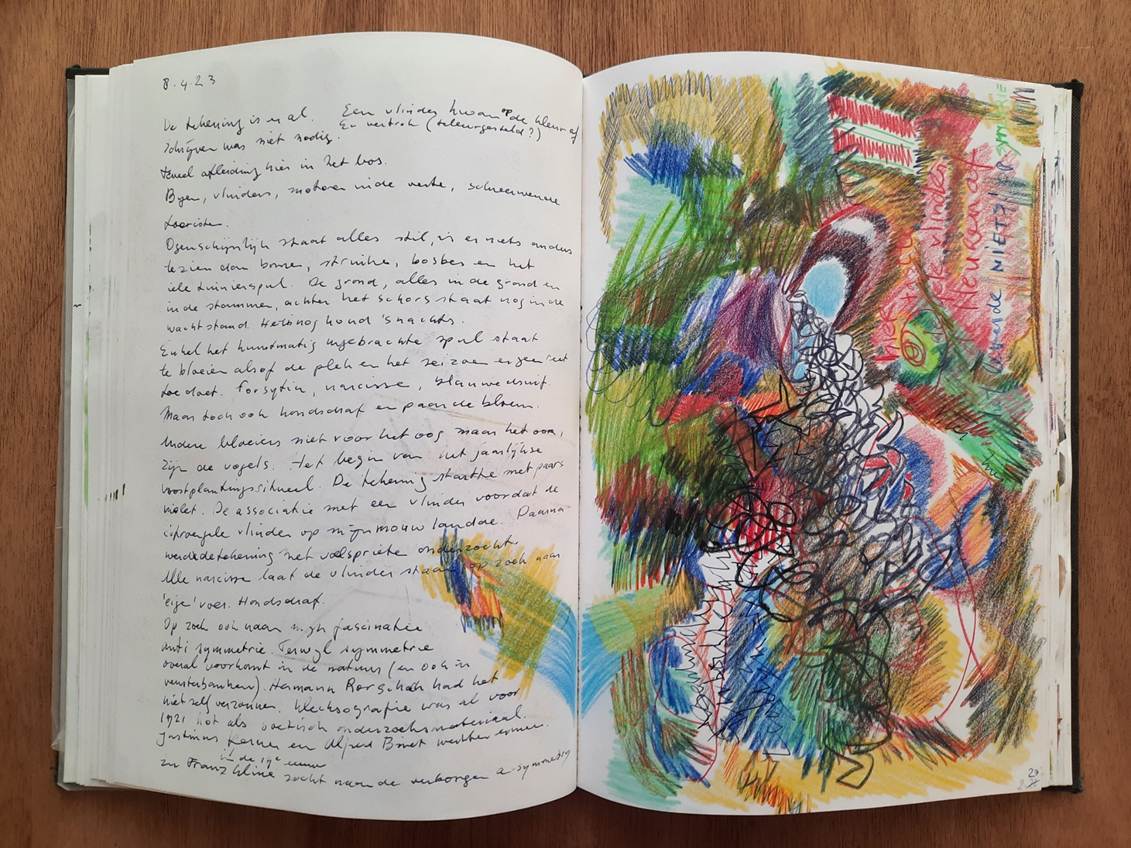 8.4.23
De tekening is er al. Een vlinder kwam op de kleur af
Schrijven was niet nodig. En vertrok (teleurgesteld?)
teveel afleiding hier in het bos.
Bijen, vlinders, motoren in de verte, schreeuwende
toeristen.
Ogenschijnlijk staat alles stil, is er niets anders
te zien dan bomen, struiken, bosbes en het
iele tuinierspul. De grond, alles in de grond en
in de stammen, achter het schors staat nog in de
wachtstand. Het is nog koud 's nachts.
Enkel het kunstmatig ingebrachte spul staat
te bloeien alsof de plek en het seizoen er geen
toe doet. Forsytia, narcisse, blauwe druif.
Maar toch ook hondsdraf en paardebloem.
Andere bloeiers niet voor het oog maar het oor,
zijn de vogels. Het begin van het jaarlijkse
voortplantingsritueel. De tekening startte met paars
violet. De associatie met een vlinder voordat de
citroengele vlinder op mijn mouw landde. Daarna
werd de tekening met voelspriete onderzocht.
Alle narcisse laat de vlinder staan op zoek naar
'eige' voer. Hondsdraf.
Op zoek ook naar mijn fascinatie
anti symmetrie. Terwijl symmetrie
overal voorkomt in de natuur (en ook in
vensterbanken). Hermann Rorschach had het
niet zelf verzonnen. Klecksografie was al voor
1921 hot als poëtisch onderzoeksmateriaal.
Justinus Kerner en Alfred Binet werkten ermee
in de 19e eeuw
zo Franz Kline zocht naar de verborgen a-symmetrie
vlinder
kleuren af
NIET
20